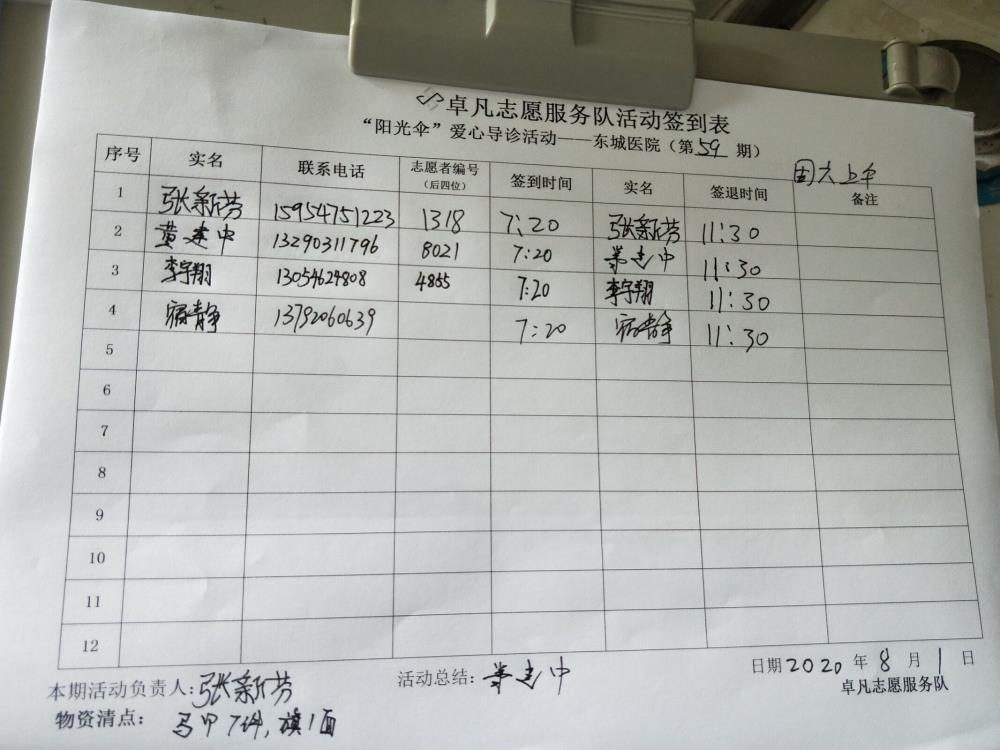 卓凡志愿服务队活动签到表
“阳光伞”爱心导诊活动——东城医院（第59期）
周六上午
序号 实名 联系电话 志愿者编号（后四位） 签到时间 实名 签退时间 备注
1 张新芳 15954751223 1318 7:20 张新芳 11:30
2 黄建中 13290311796 8021 7:20 黄建中 11:30
3 李宇翔 13054624808 4865 7:20 李宇翔 11:30
4 宿静 13792060639 7:20 宿静 11:30
5
6
7
8
9
10
11
12
本期活动负责人：张新芳 活动总结：黄建中 日期2020年8月1日
物资清点：马甲7件，旗1面 卓凡志愿服务队